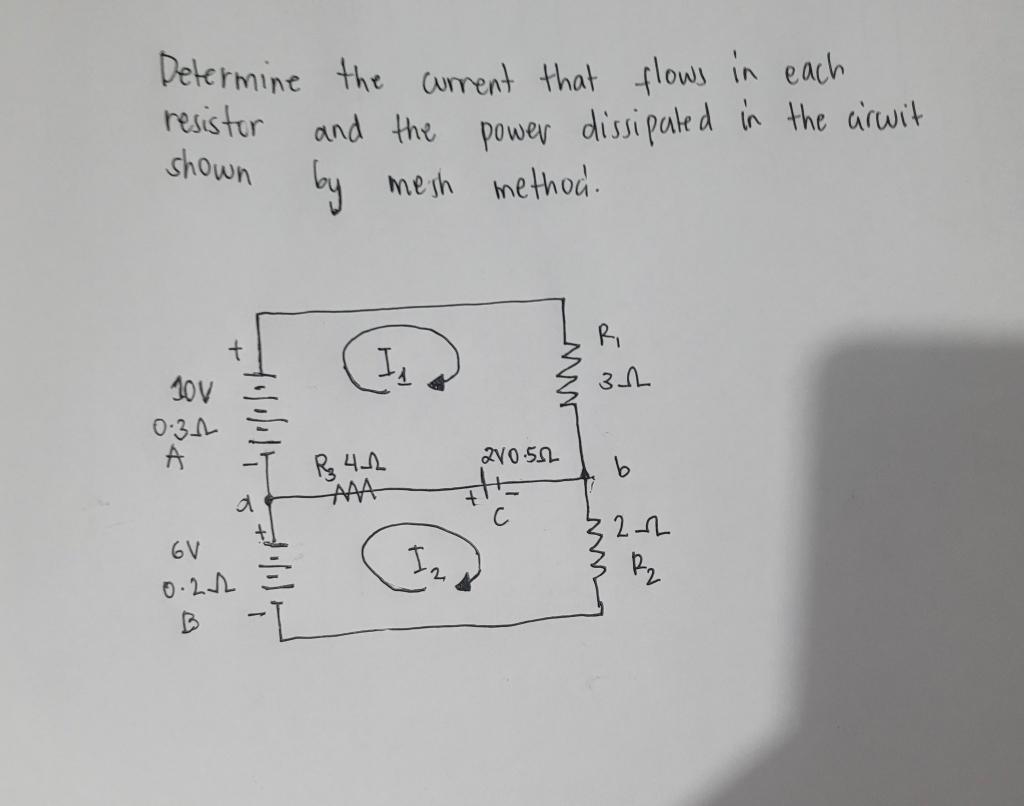 Determine the current that flows in each
resistor and the power dissipated in the circuit
shown by mesh method.
+
I1
R1
3Ω
10V
0.3Ω
A
-
R3 4Ω
2V 0.5Ω
b
a
+ -
C
+
2Ω
R2
6V
0.2Ω
B
-
I2